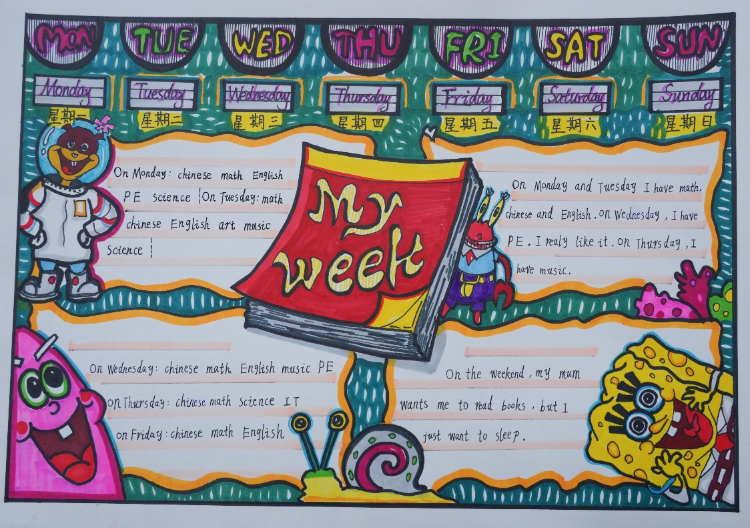 MON TUE WED THU FRI SAT SUN
Monday Tuesday Wednesday Thursday Friday Saturday Sunday
星期一 星期二 星期三 星期四 星期五 星期六 星期日
My
week
On Monday: chinese math English
PE science On Tuesday: math
chinese English art music
science
On Monday and Tuesday I have math.
chinese and English. on Wednesday, I have
PE. I realy like it. on Thursday, I
have music.
On Wednesday: chinese math English music PE
on Thursday: chinese math science IT
on Friday: chinese math English
On the weekend, my mum
wants me to read books. but I
just want to sleep.